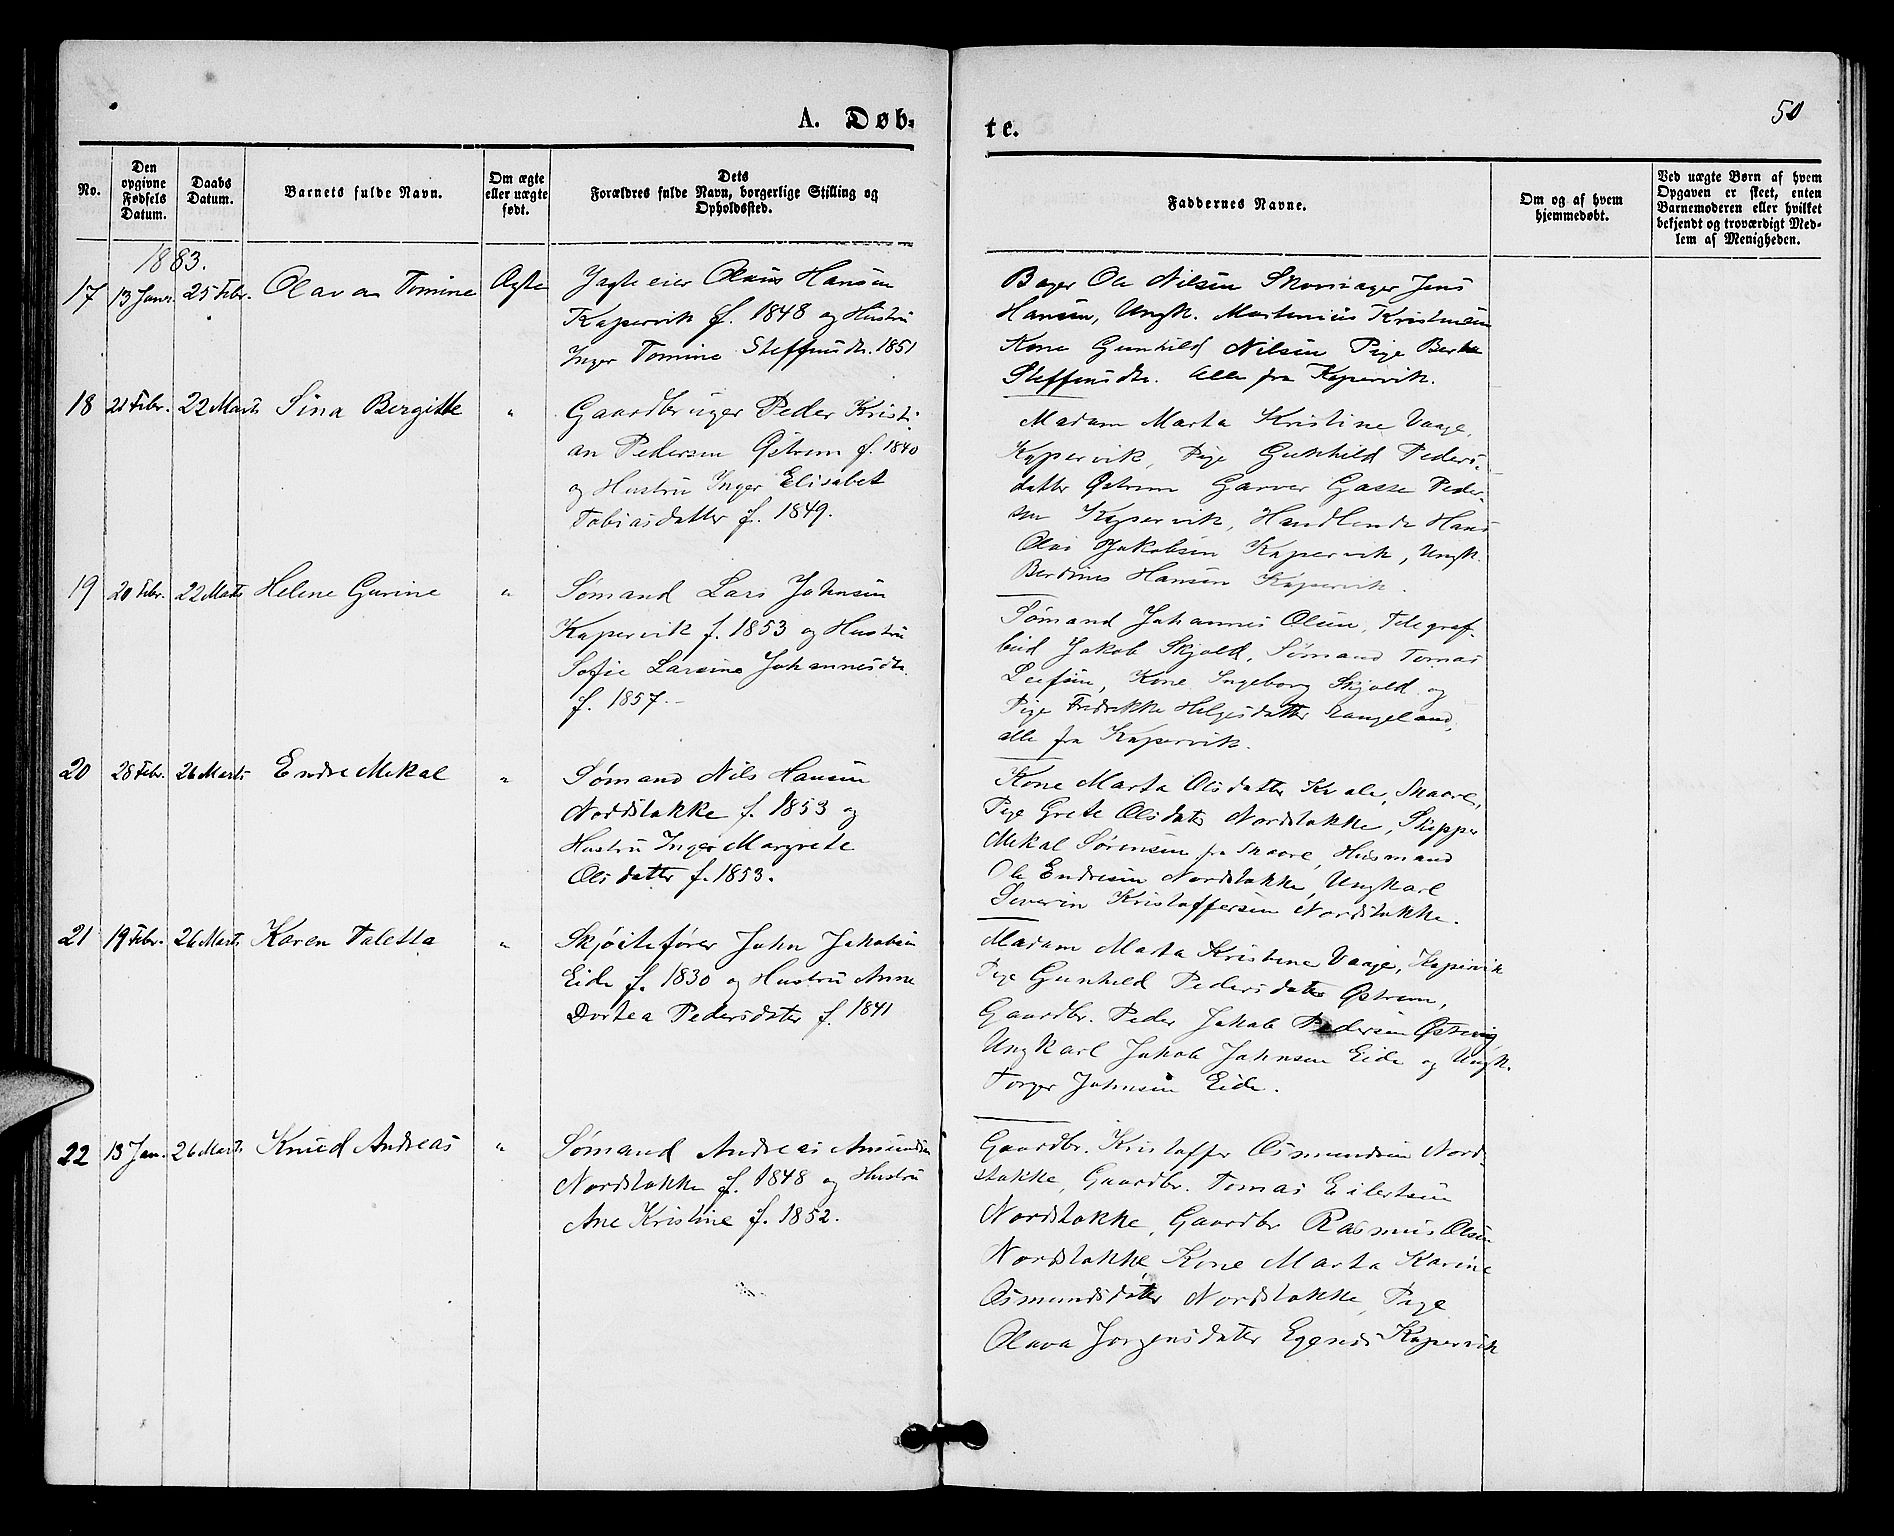 A. Døb-
te.
50
No.
Den opgivne Fødsels Datum.
Daabs Datum.
Barnets fulde Navn.
Om ægte eller uægte født.
Dets Forældres fulde Navn, borgerlige Stilling og Opholdssted.
Faddernes Navne.
Om og af hvem hjemmedøbt.
Ved uægte Børn af hvem Opgaven er skeet, enten Barnemoderen eller hvilket bekjendt og troværdigt Medlem af Menigheden.
1883.
17 13 Janr. 25 Febr. Olava Tomine Ægte
Jagteeier Olaus Hansen
Kopervik f. 1848 og Hustru
Inger Tomine Steffensdtr. 1851
Bager Ole Nilsen Skomager Jens
Hansen, Ungk. Martinius Kristensen
Kone Gunhild Nilsen Pige Berta
Steffensdtr. Alle fra Kopervik.
18 21 Febr. 22 Marts Sina Bergitte "
Gaardbruger Peder Kristi-
an Pedersen Østrem f. 1840
og Hustru Inger Elisabet
Tobiasdatter f. 1849.
Madam Marta Kristine Vaage,
Kopervik, Pige Gunhild Peders-
datter Østrem Garver Gasse Peder-
sen Kopervik, Handlende Hans
Olai Jakobsen Kopervik, Ungk.
Berdines Hansen Kopervik.
19 20 Febr. 22 Marts Helene Gurine "
Sømand Lars Johnsen
Kopervik f. 1853 og Hustru
Sofie Larsine Johannesdtr.
f. 1857.-
Sømand Johannes Olsen, Telegraf-
bud Jakob Skjold, Sømand Tomas
Leefsen, Kone Ingeborg Skjold og
Pige Fredrikke Helgesdatter Langeland,
alle fra Kopervik.
20 28 Febr. 26 Marts Endre Mekal "
Sømand Nils Hansen
Nordstokke f. 1853 og
Hustru Inger Margrete
Olsdatter f. 1853.
Kone Marta Olsdatter Kvale, Skaare,
Pige Grete Olsdatter Nordstokke, Skipper
Mekal Sørensen fra Skaare, Husmand
Ole Endresen Nordstokke, Ungkarl
Severin Kristoffersen Nordstokke.
21 19 Febr. 26 Marts Karen Taletta "
Skjøitefører John Jakobsen
Eide f. 1830 og Hustru Anne
Dortea Pedersdatter f. 1841
Madam Marta Kristine Vaage, Kopervik
Pige Gunhild Pedersdatter Østrem,
Gaardbr. Peder Jakob Pedersen
Ungkarl Jakob Johnsen Eide og Ungk.
Torger Johnsen Eide.
22 13 Jan. 26 Marts Knud Andreas "
Sømand Andreas Amundsen
Nordstokke f. 1848 og Hustru
Ane Kristine f. 1852.
Gaardbr. Kristoffer Osmundsen Nord-
stokke, Gaardbr. Tomas Eilertsen
Nordstokke, Gaardbr Rasmus Olsen
Nordstokke, Kone Marta Karine
Osmundsdatter Nordstokke, Pige
Olava Jorgensdatter Kopervik